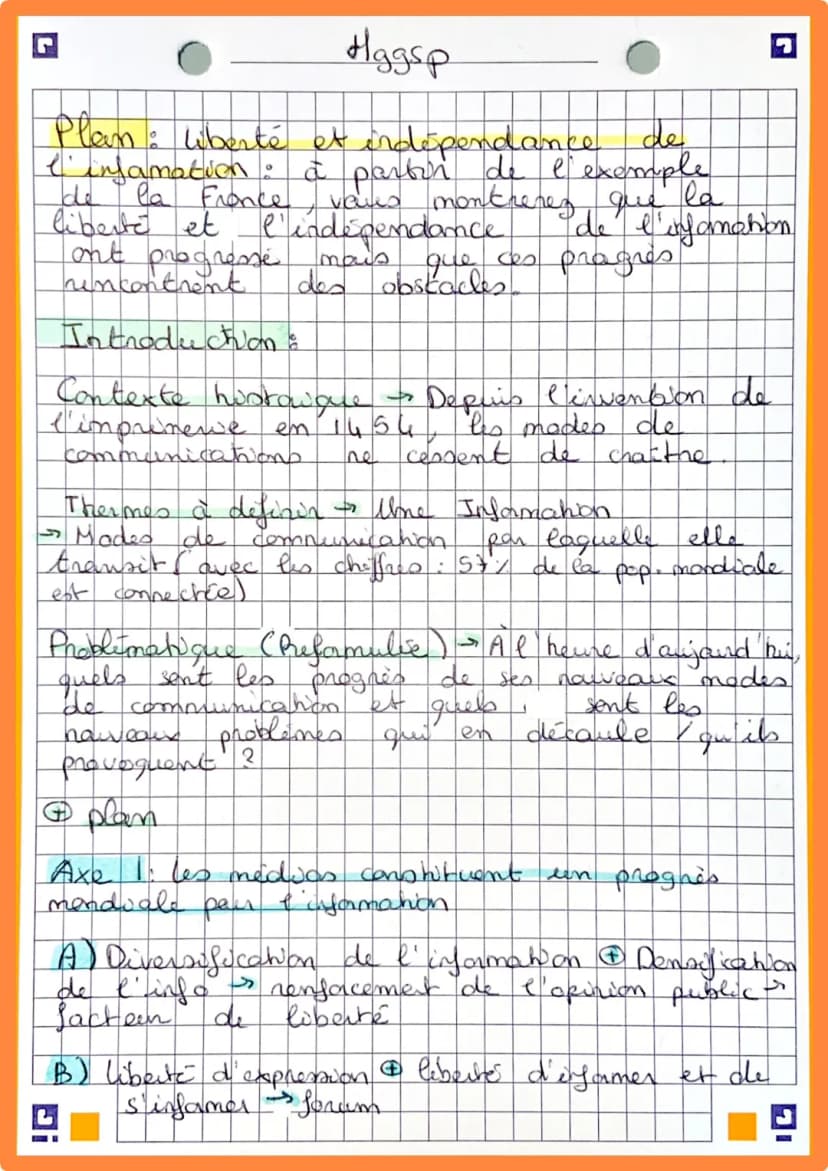 Hggsp
Plan : liberté et indépendance de
l'infamation : à partir de l'exemple
de la France, vous montrerez que la
liberté et l'indépendance de l'information
ont progressé mais que ces progrès
rencontrent des obstacles.
Introduction :
Contexte historique → Depuis l'invention de
l'imprimerie en 1454, les modes de
communications ne cessent de croître.
Thermes à définir → Une Information
→ Modes de communication par laquelle elle
transit (avec les chiffres : 57% de la pop. mondiale
est connectée)
Problématique (Reformulée) → À l'heure d'aujourd'hui,
quels sont les progrès de ses nouveaux modes
de communication et quels sont les
nouveaux problèmes qui en découle / qu'ils
provoquent ?
⊕ plan
Axe 1 : les médias constituent un progrès
mondiale pour l'information
A) Diversification de l'information ⊕ Densification
de l'info → renforcement de l'opinion public →
facteur de liberté
B) liberté d'expression ⊕ libertés d'informer et de
s'informer → forum